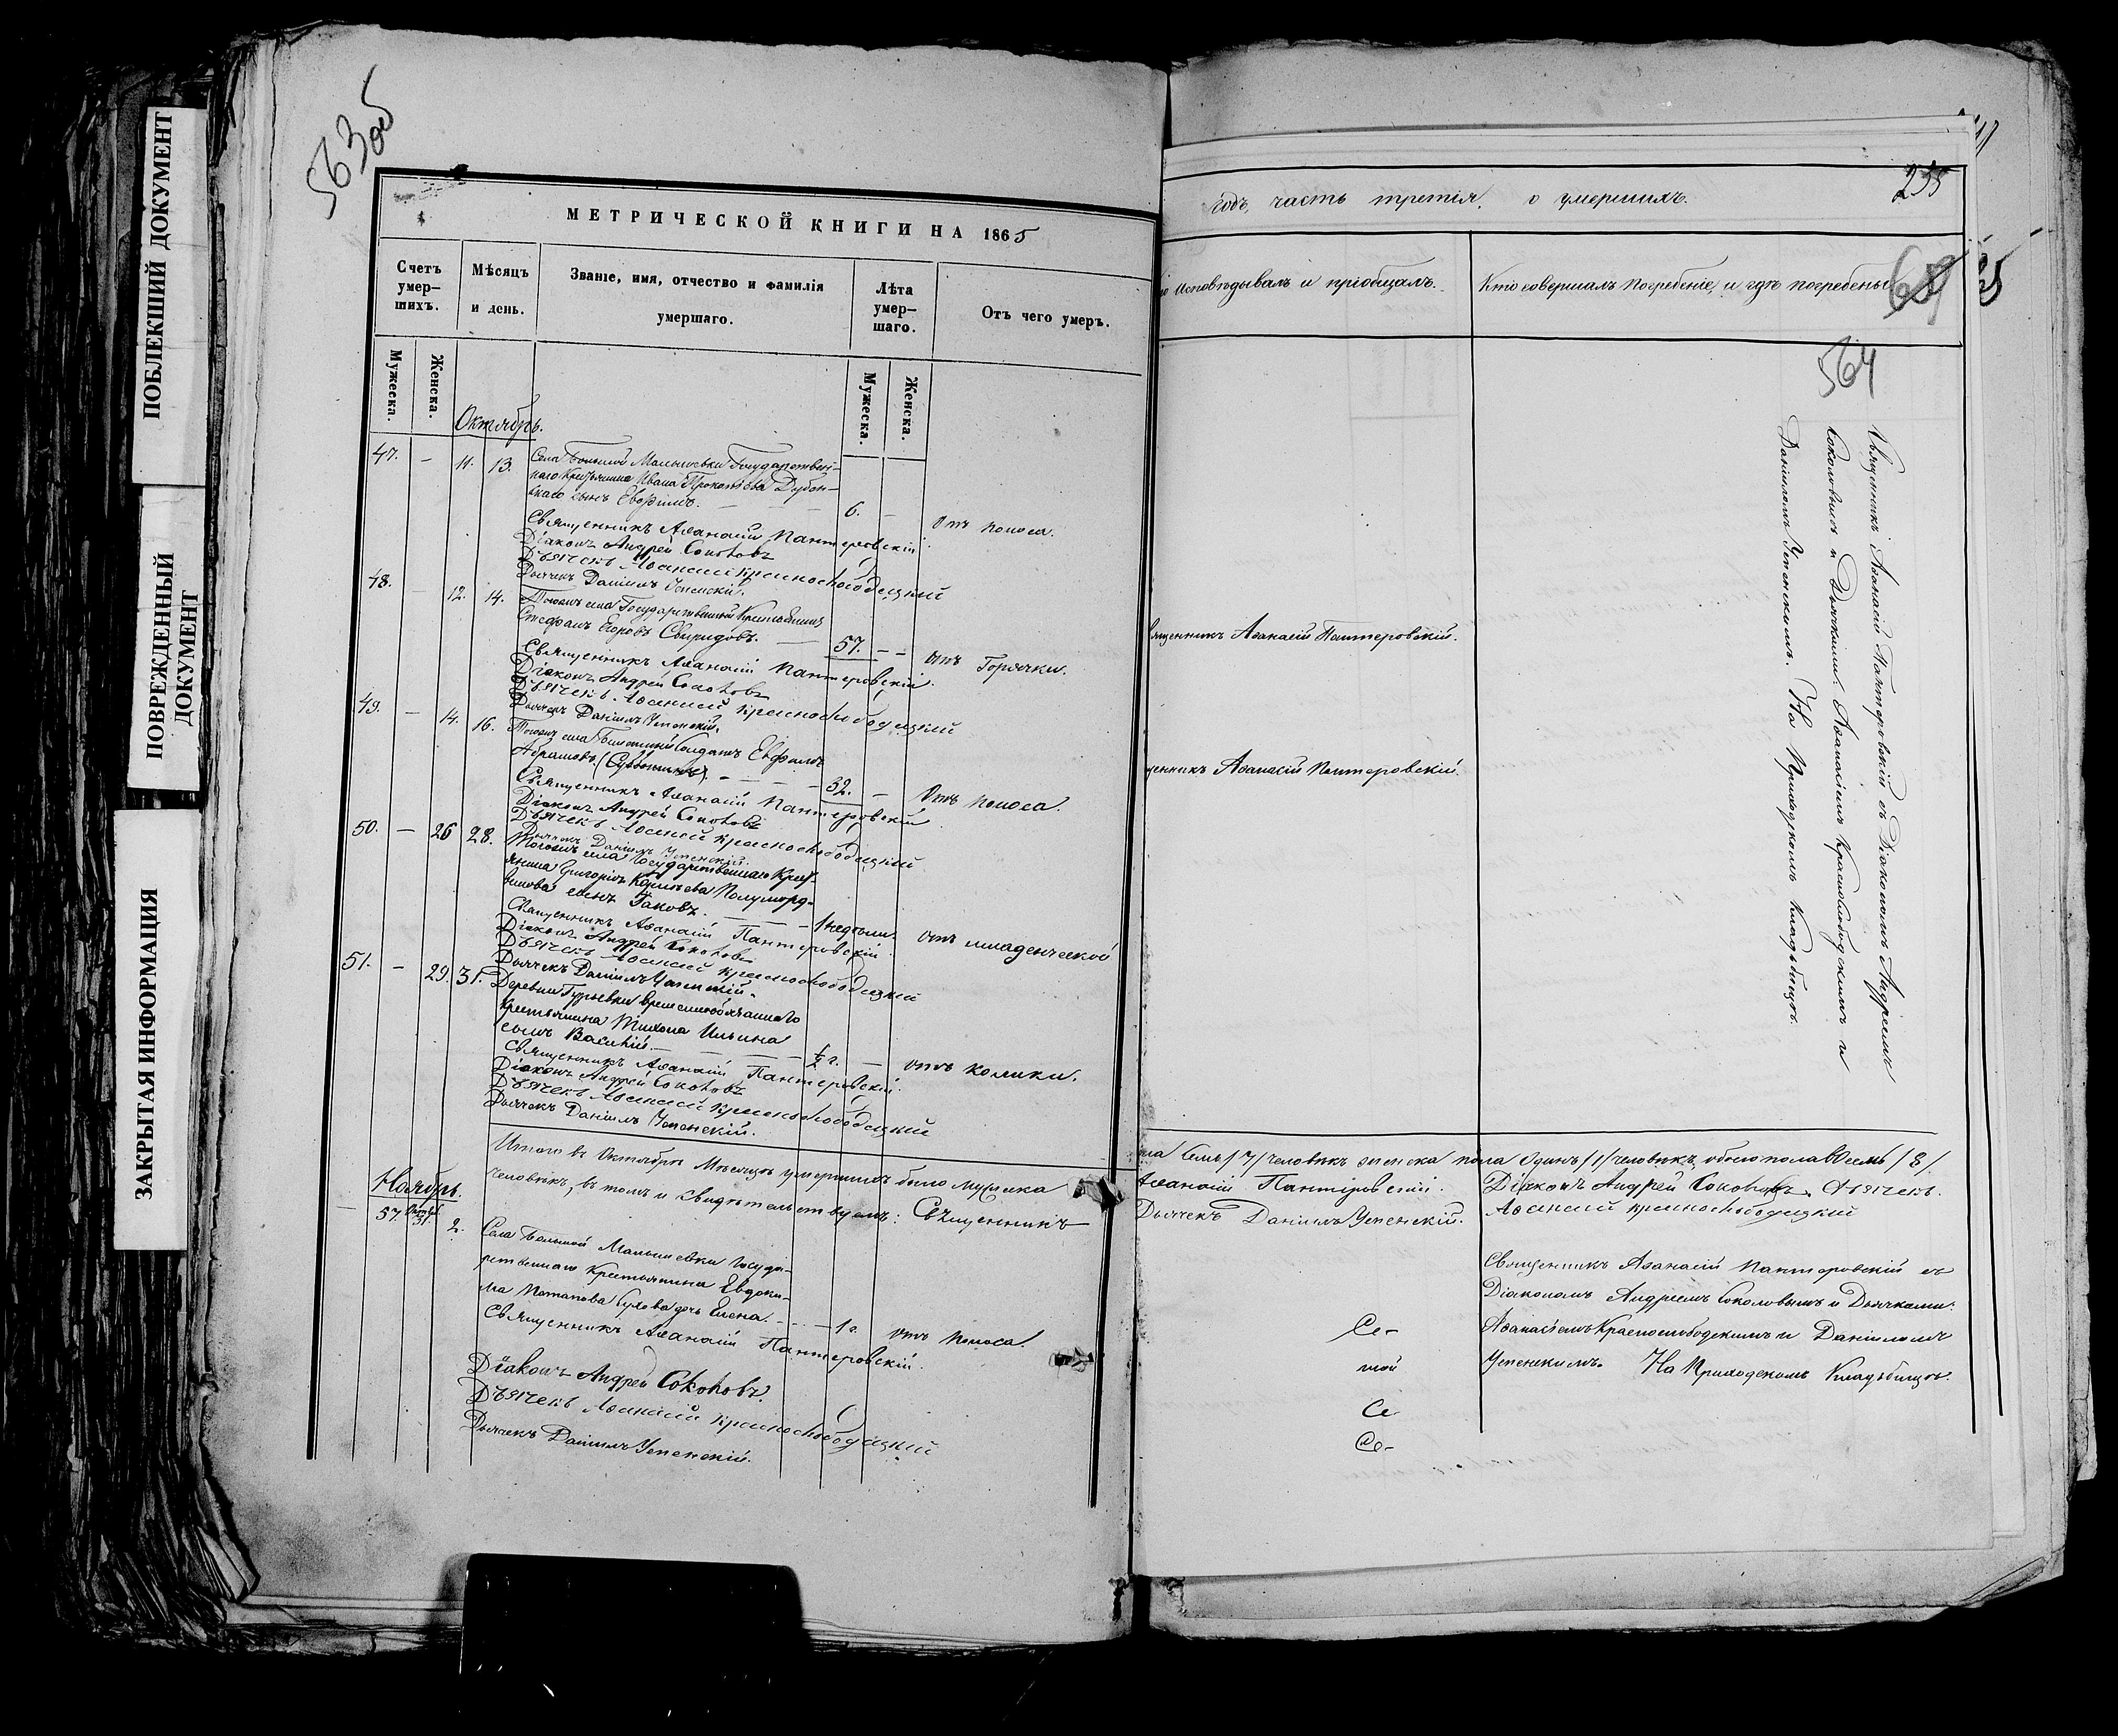 ПОБЛЕКШИЙ ДОКУМЕНТ
ПОВРЕЖДЕННЫЙ
ДОКУМЕНТ
ЗАКРЫТАЯ ИНФОРМАЦИЯ
563 об
МЕТРИЧЕСКОЙ КНИГИ НА 1865
Счетъ умер-
шихъ.
Мѣсяцъ
и день.
Званіе, имя, отчество и фамилія
умершаго.
Лѣта
умер-
шаго.
Отъ чего умеръ.
Мужеска.
Женска.
Мужеска.
Женска.
Октябрь.
47. — 11. 13. Села Большой Малышевки Государствен-
наго Крестьянина Ивана Прокопьева
сынъ Евфимъ. — 6. — Отъ поноса.
Священникъ Аѳанасій Пантеровскій.
Діаконъ Андрей Соколовъ
Дьячекъ Аѳанасій Краснослободецкій
Дьячекъ Даніилъ Успенскій.
48. — 12. 14. Тогожъ села Государственный Крестьянинъ
Стефанъ Егоровъ Свиридовъ. — 57. — отъ Горячки.
Священникъ Аѳанасій Пантеровскій.
Діаконъ Андрей Соколовъ
Дьячекъ Аѳанасій Краснослободецкій
Дьячекъ Даніилъ Успенскій.
49. — 14. 16. Тогожъ села Билетный Солдатъ Евфимъ
Абрамовъ — 32. — Отъ поноса.
Священникъ Аѳанасій Пантеровскій
Діаконъ Андрей Соколовъ
Дьячекъ Аѳанасій Краснослободецкій
Дьячекъ Даніилъ Успенскій.
50. — 26 28. Тогожъ села Государственнаго Кресть-
янина Григорія Карпѣева Полуморд-
винова сынъ Іаковъ. — 1 недѣли. отъ младенческой
Священникъ Аѳанасій Пантеровскій.
Діаконъ Андрей Соколовъ
Дьячекъ Аѳанасій Краснослободецкій
Дьячекъ Даніилъ Успенскій.
51. — 29. 31. Деревни Гурьевки временнообязаннаго
Крестьянина Тихона Ильина
сынъ Василій. — ½ г. — отъ колики.
Священникъ Аѳанасій Пантеровскій.
Діаконъ Андрей Соколовъ
Дьячекъ Аѳанасій Краснослободецкій
Дьячекъ Даніилъ Успенскій.
Итого въ Октябрѣ Мѣсяцѣ умершихъ было мужеска
человѣкъ, въ томъ и свидѣтельствуемъ: Священникъ
Ноябрь.
— 57. 31. 2. Села Большой Малышевки Госуда-
рственнаго Крестьянина Евдоки-
ма Потапова дочь Елена. — 1 г. отъ поноса.
Священникъ Аѳанасій Пантеровскій.
Діаконъ Андрей Соколовъ.
Дьячекъ Аѳанасій Краснослободецкій
Дьячекъ Даніилъ Успенскій.
годъ, часть третія, о умершихъ.
235
исповѣдывалъ и пріобщалъ.
Кто совершалъ погребеніе, и гдѣ погребены
564
Священникъ Аѳанасій Пантеровскій съ Діакономъ Андреемъ
Соколовымъ и Дьячками: Аѳанасіемъ Краснослободскимъ и
Даніиломъ Успенскимъ. На Приходскомъ кладбищѣ.
священникъ Аѳанасій Пантеровскій.
щенникъ Аѳанасій Пантеровскій.
пола Семь /7/ человѣкъ женска пола Одинъ /1/ человѣкъ, обоего пола Восемь /8/.
Аѳанасій Пантеровскій. Діаконъ Андрей Соколовъ. Дьячекъ.
Дьячекъ Даніилъ Успенскій. Аѳанасій Краснослободецкій
Священникъ Аѳанасій Пантеровскій съ
Діакономъ Андреемъ Соколовымъ и Дьячками:
Аѳанасіемъ Краснослободскимъ и Даніиломъ
Успенскимъ. На Приходскомъ Кладбищѣ.
Се-
мой
Се
Се-